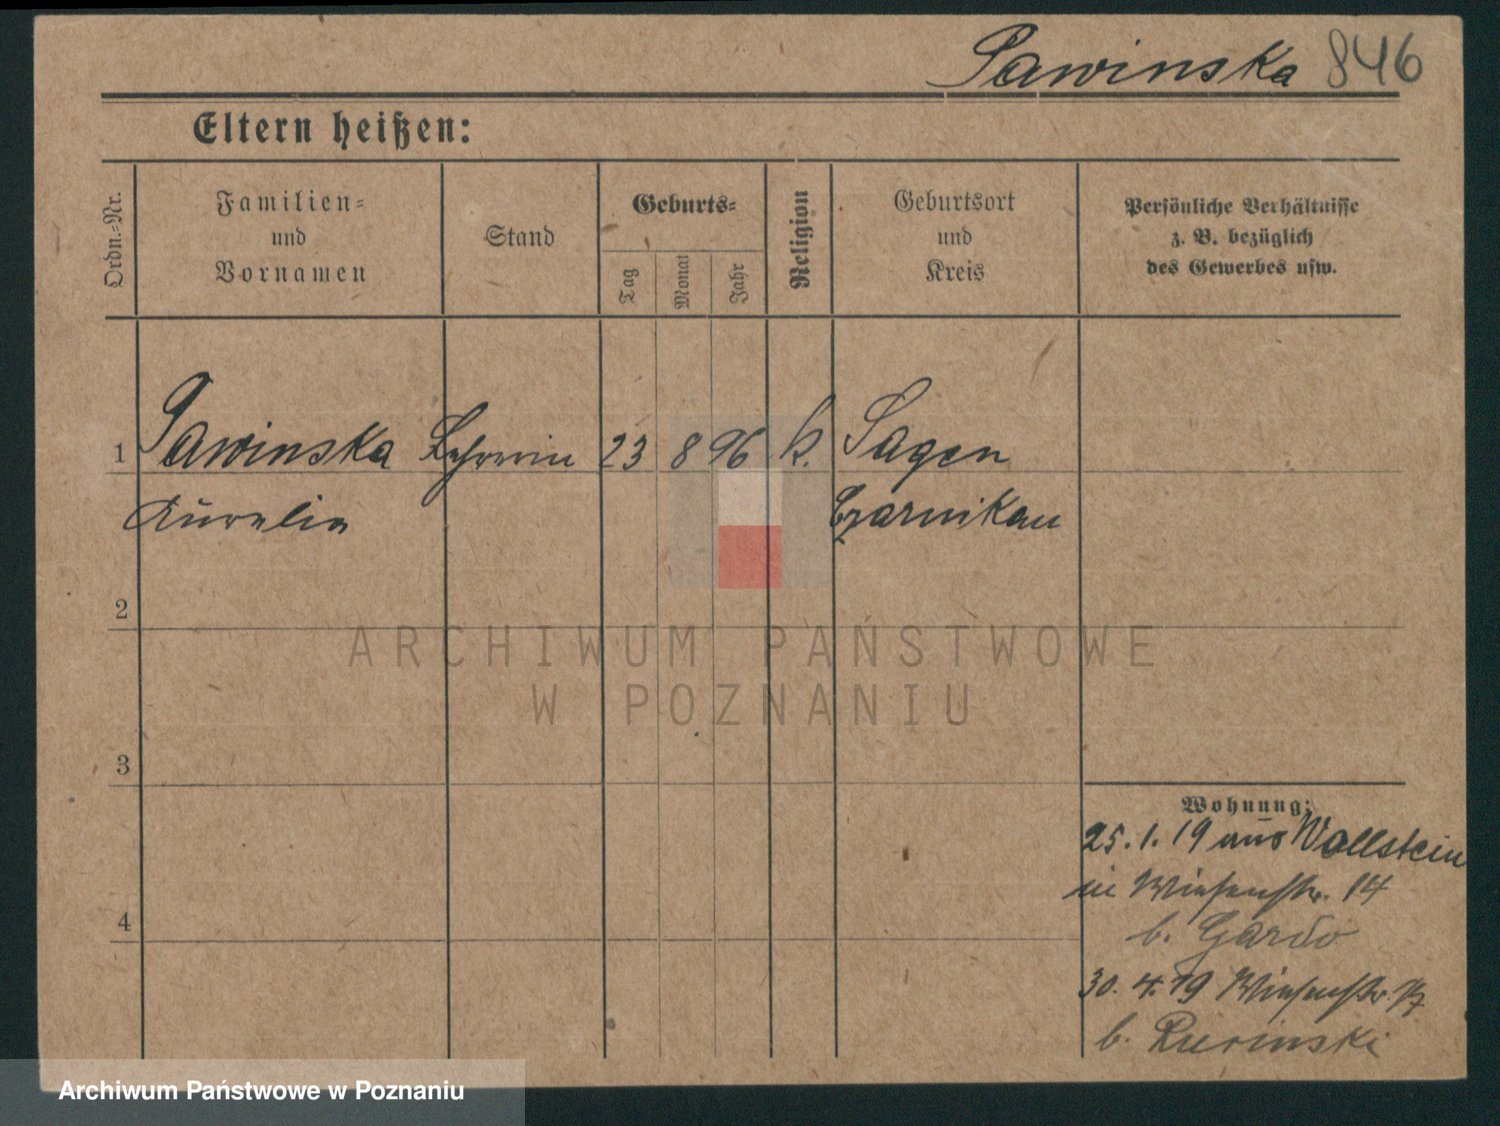 Pawinska 846
Eltern heißen:
Ordn.-Nr.
Familien-
und
Vornamen
Stand
Geburts-
Tag
Monat
Jahr
Religion
Geburtsort
und
Kreis
Persönliche Verhältnisse
z. B. bezüglich
des Gewerbes usw.
1 Pawinska Lehrerin 23 8 96 k. Sagen
Aurelia Czarnikau
2
3
4
Wohnung:
25. 1. 19 aus Wollstein
in Wiesenstr. 14
b. Gardo
30. 4. 19 Wiesenstr.
b.
ARCHIWUM PAŃSTWOWE
W POZNANIU
Archiwum Państwowe w Poznaniu